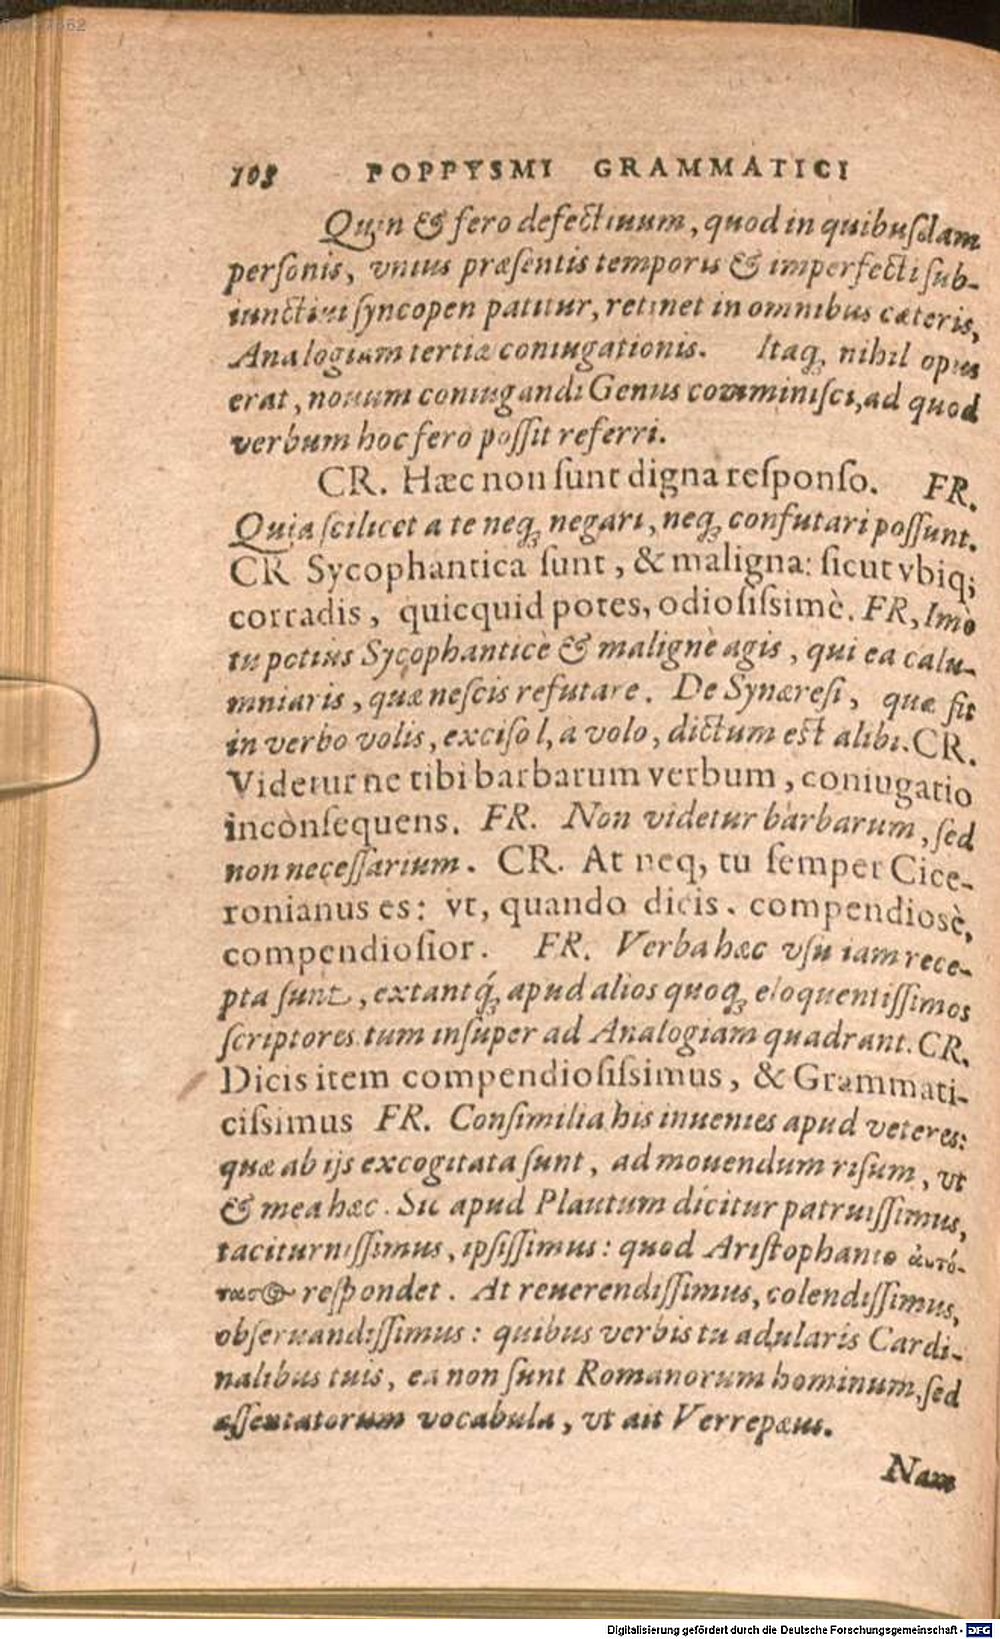 108 POPPYSMI GRAMMATICI
Quin & fero defectiuum, quod in quibusdam
personis, vnius præsentis temporis & imperfecti sub-
iunctiui syncopen patitur, retinet in omnibus cæteris,
Analogiam tertiæ coniugationis. Itaq; nihil opus
erat, nouum coniugandi Genus comminisci, ad quod
verbum hoc fero possit referri.
CR. Hæc non sunt digna responso. FR.
Quia scilicet a te neq; negari, neq; confutari possunt.
CR Sycophantica sunt, & maligna: sicut vbiq;
corradis, quicquid potes, odiosissimè. FR, Imò
tu potius Sycophanticè & malignè agis, qui ea calu-
mniaris, quæ nescis refutare. De Synæresi, quæ fit
in verbo volis, excisol, a volo, dictum est alibi. CR.
Videtur ne tibi barbarum verbum, coniugatio
inconsequens. FR. Non videtur barbarum, sed
non necessarium. CR. At neq; tu semper Cice-
ronianus es: vt, quando dicis. compendiosè,
compendiosior. FR. Verba hæc vsu iam rece-
pta sunt, extantq́; apud alios quoq; eloquentissimos
scriptores tum insuper ad Analogiam quadrant. CR.
Dicis item compendiosissimus, & Grammati-
cissimus FR. Consimilia his inuenies apud veteres:
quæ ab ijs excogitata sunt, ad mouendum risum, vt
& mea hæc. Sic apud Plautum dicitur patruissimus,
taciturnissimus, ipsissimus: quod Aristophanio ἀυτό-
τατος respondet. At reuerendissimus, colendissimus,
obseruandissimus: quibus verbis tu adularis Cardi-
nalibus tuis, ea non sunt Romanorum hominum, sed
assentatorum vocabula, vt ait Verrepæus.
Nam
Digitalisierung gefördert durch die Deutsche Forschungsgemeinschaft - DFG